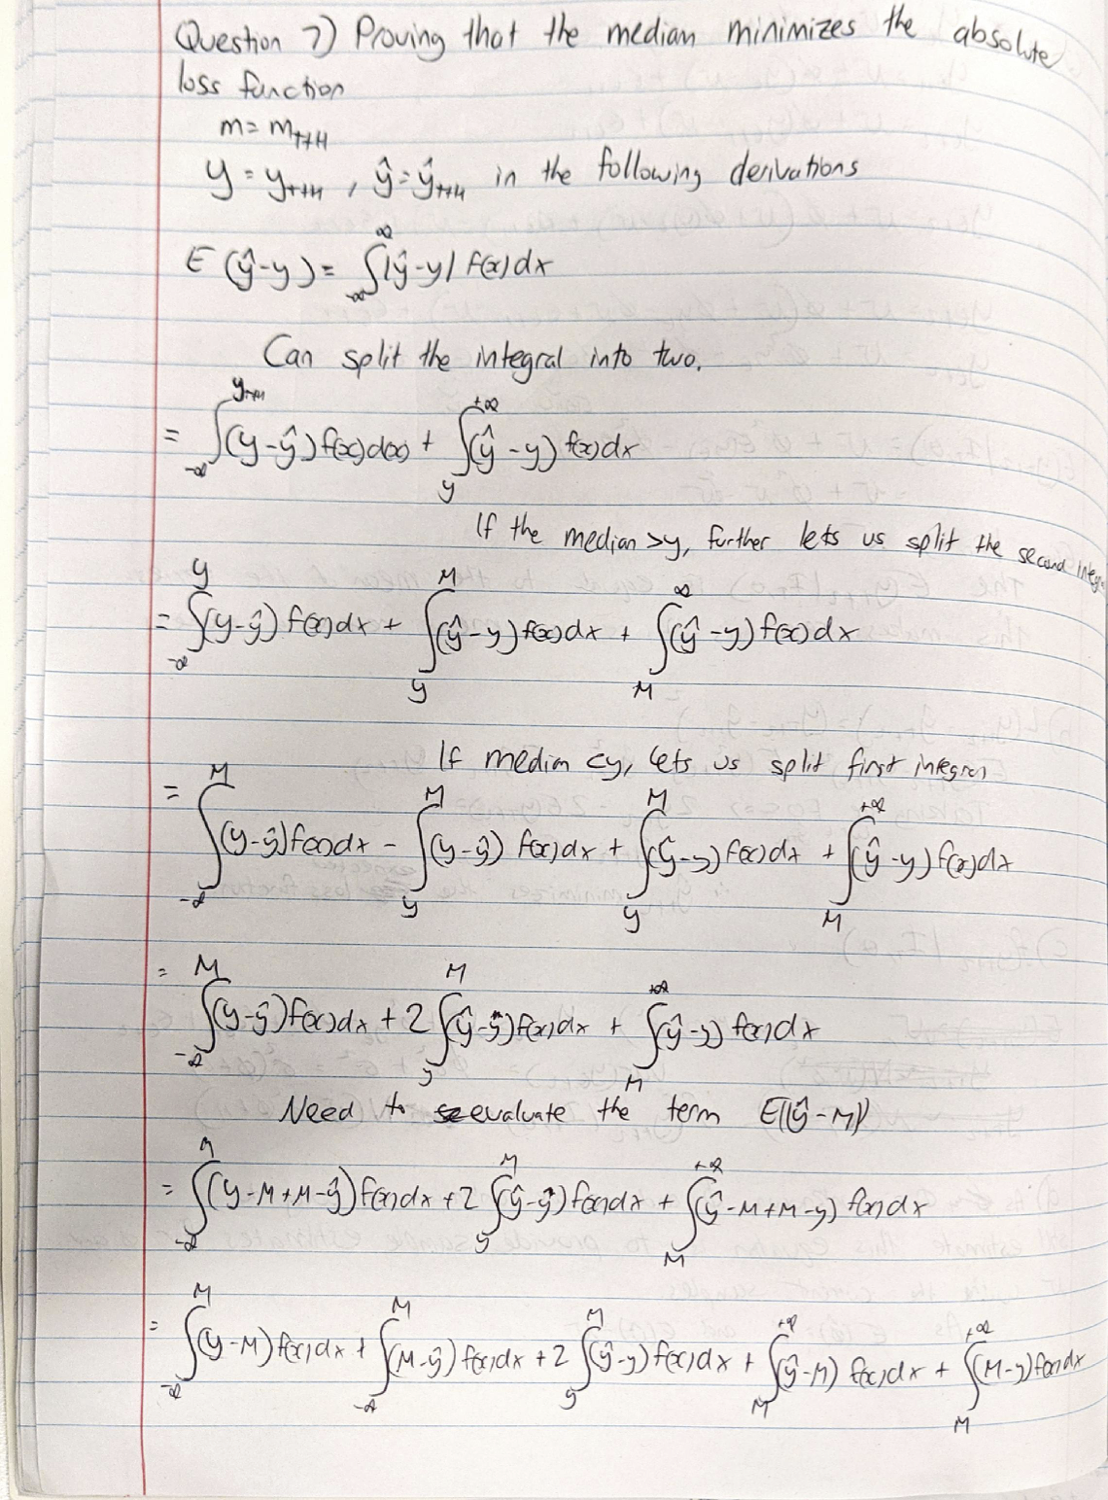 Question 7) Proving that the median minimizes the absolute
loss function
m = m_{t+H}
y = y_{t+H}, ŷ = ŷ_{t+H} in the following derivations
E(ŷ-y) = ∫_{-∞}^{∞} |ŷ-y| f(x)dx
Can split the integral into two.
= ∫_{-∞}^{y_{t+H}} (y-ŷ) f(x)d(x) + ∫_{y}^{+∞} (ŷ-y) f(x)dx
If the median >y, further lets us split the second integral
= ∫_{-∞}^{y} (y-ŷ) f(x)dx + ∫_{y}^{M} (ŷ-y) f(x)dx + ∫_{M}^{∞} (ŷ-y) f(x)dx
If median <y, lets us split first integral
= ∫_{-∞}^{M} (y-ŷ) f(x)dx - ∫_{y}^{M} (y-ŷ) f(x)dx + ∫_{y}^{M} (ŷ-y) f(x)dx + ∫_{M}^{+∞} (ŷ-y) f(x)dx
= ∫_{-∞}^{M} (y-ŷ) f(x)dx + 2 ∫_{y}^{M} (ŷ-y) f(x)dx + ∫_{M}^{+∞} (ŷ-y) f(x)dx
Need to evaluate the term E(|ŷ-M|)
= ∫_{-∞}^{M} (y-M+M-ŷ) f(x)dx + 2 ∫_{y}^{M} (ŷ-y) f(x)dx + ∫_{M}^{+∞} (ŷ-M+M-y) f(x)dx
= ∫_{-∞}^{M} (y-M) f(x)dx + ∫_{-∞}^{M} (M-ŷ) f(x)dx + 2 ∫_{y}^{M} (ŷ-y) f(x)dx + ∫_{M}^{+∞} (ŷ-M) f(x)dx + ∫_{M}^{+∞} (M-y) f(x)dx